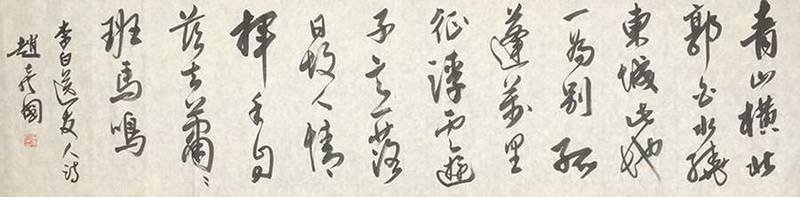 青山橫北
郭白水繞
東城此地
一為別孤
蓬萬里
征浮雲遊
子意落
日故人情
揮手自
茲去蕭々
班馬鳴
李白送友人詩
趙國